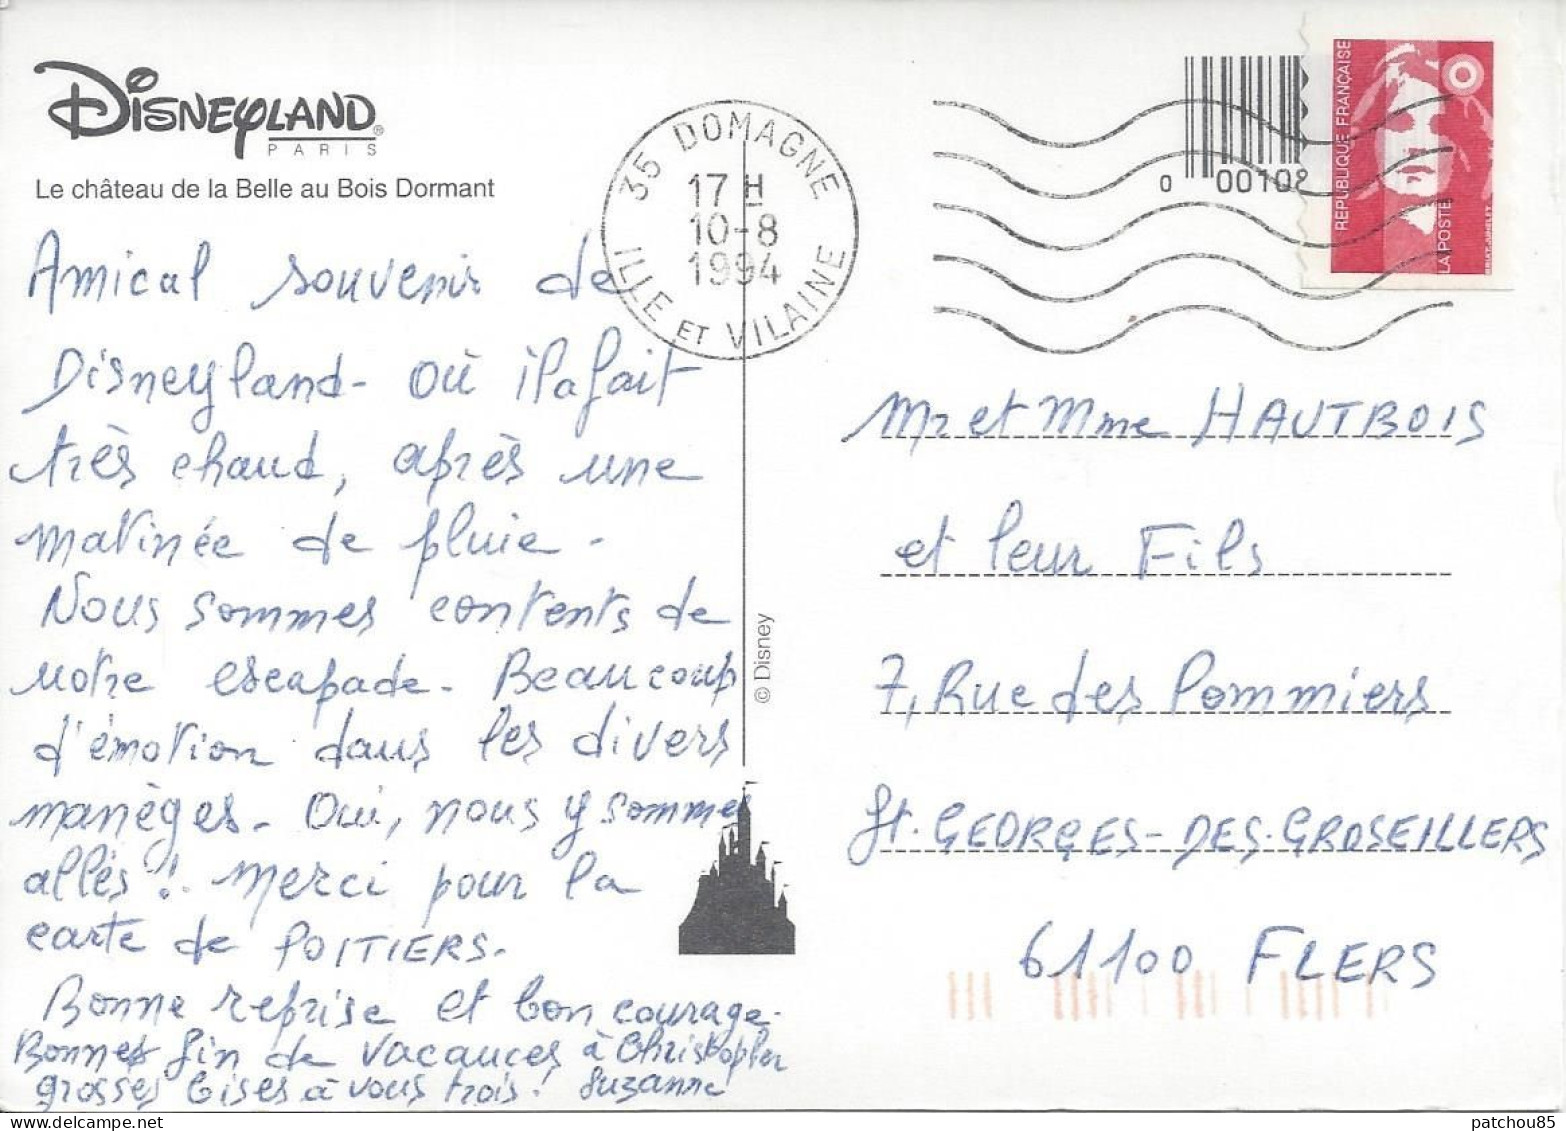 DISNEYLAND®
PARIS
Le château de la Belle au Bois Dormant
Amical souvenir de
Disneyland- où il a fait
très chaud, après une
matinée de pluie -
Nous sommes contents de
notre escapade - Beaucoup
d'émotion dans les divers
manèges - Oui, nous y sommes
allés !. Merci pour la
carte de POITIERS.
Bonne reprise et bon courage.
Bonne fin de vacances à Christopher
grosses bises à vous trois ! Suzanne
© Disney
35 DOMAGNE
17 H
10-8
1994
ILLE ET VILAINE
0 00108
REPUBLIQUE FRANÇAISE
LA POSTE
Mr et Mme HAUTBOIS
et leur Fils
7, Rue des Pommiers
St. GEORGES-DES-GROSEILLERS
61100 FLERS
patchou85